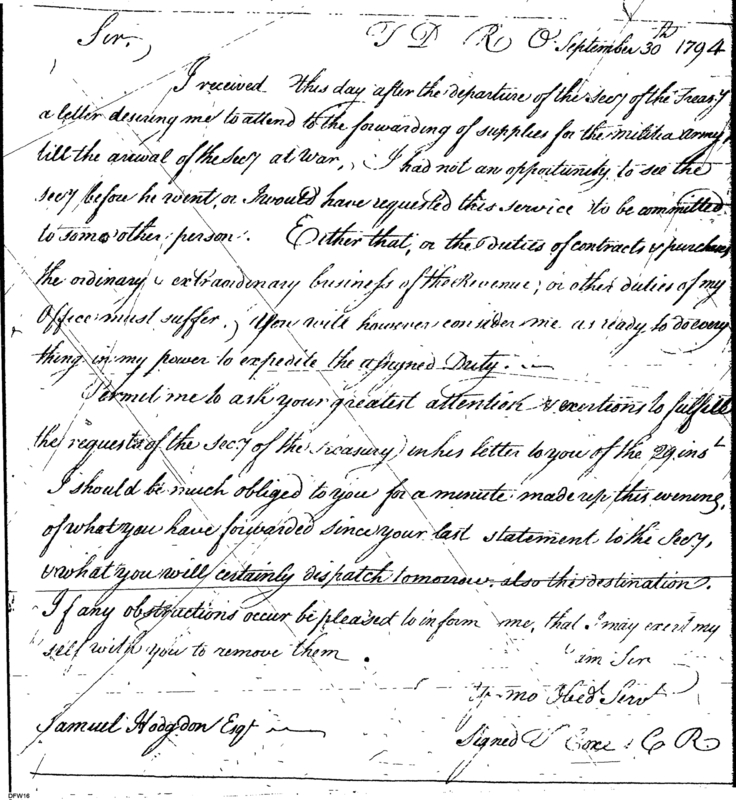 Sir, T D R O. September 30th 1794
I received this day after the departure of the Secy of the Treasy
a letter desiring me to attend to the forwarding of supplies for the militia army,
till the arrival of the Secy at War, I had not an opportunity to see the
Secy before he went, or I would have requested this service to be committed
to some other person. Either that, or the Duties of contracts & purchases
the ordinary & extraordinary business of the Revenue; or other duties of my
Office must suffer. You will however consider me as ready to do every
thing in my power to expedite the assigned Duty.
Permit me to ask your greatest attention & exertions to fulfill
the requests of the Secy of the Treasury in his letter to you of the 29 inst
I should be much obliged to you for a minute made up this evening,
of what you have forwarded since your last statement to the Secy,
& what you will certainly dispatch tomorrow. also the destination.
If any obstructions occur be pleased to inform me, that I may exert my
self with you to remove them.
am Sir
Yr mo Obed Servt
Samuel Hodgdon Esqr
Signed T Coxe C R
DFW16